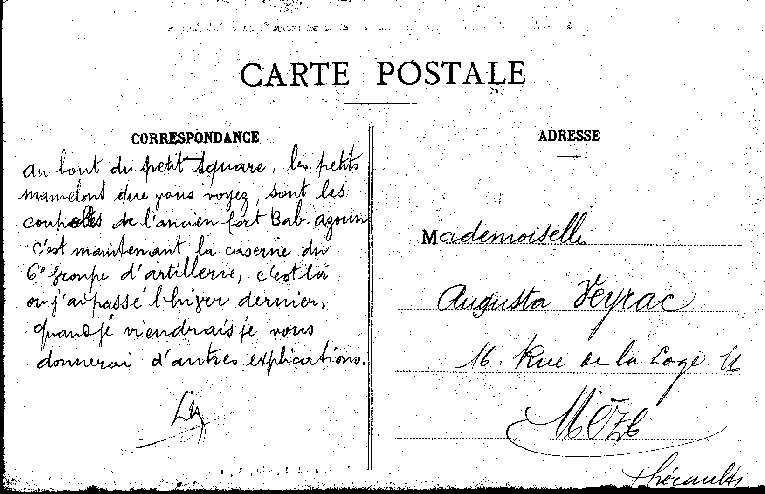 CARTE POSTALE
CORRESPONDANCE
au bout du petit square, les petits
mamelons que vous voyez, sont les
coupoles de l'ancien fort Bab-azoun
c'est maintenant la caserne du
6e groupe d'artillerie, c'est là
ou j'ai passé l'hiver dernier,
quand je viendrais je vous
donnerai d'autres explications.
ADRESSE
Mademoiselle
Augusta Veyrac
16. Rue de la Loge 16
Mèze
Hérault